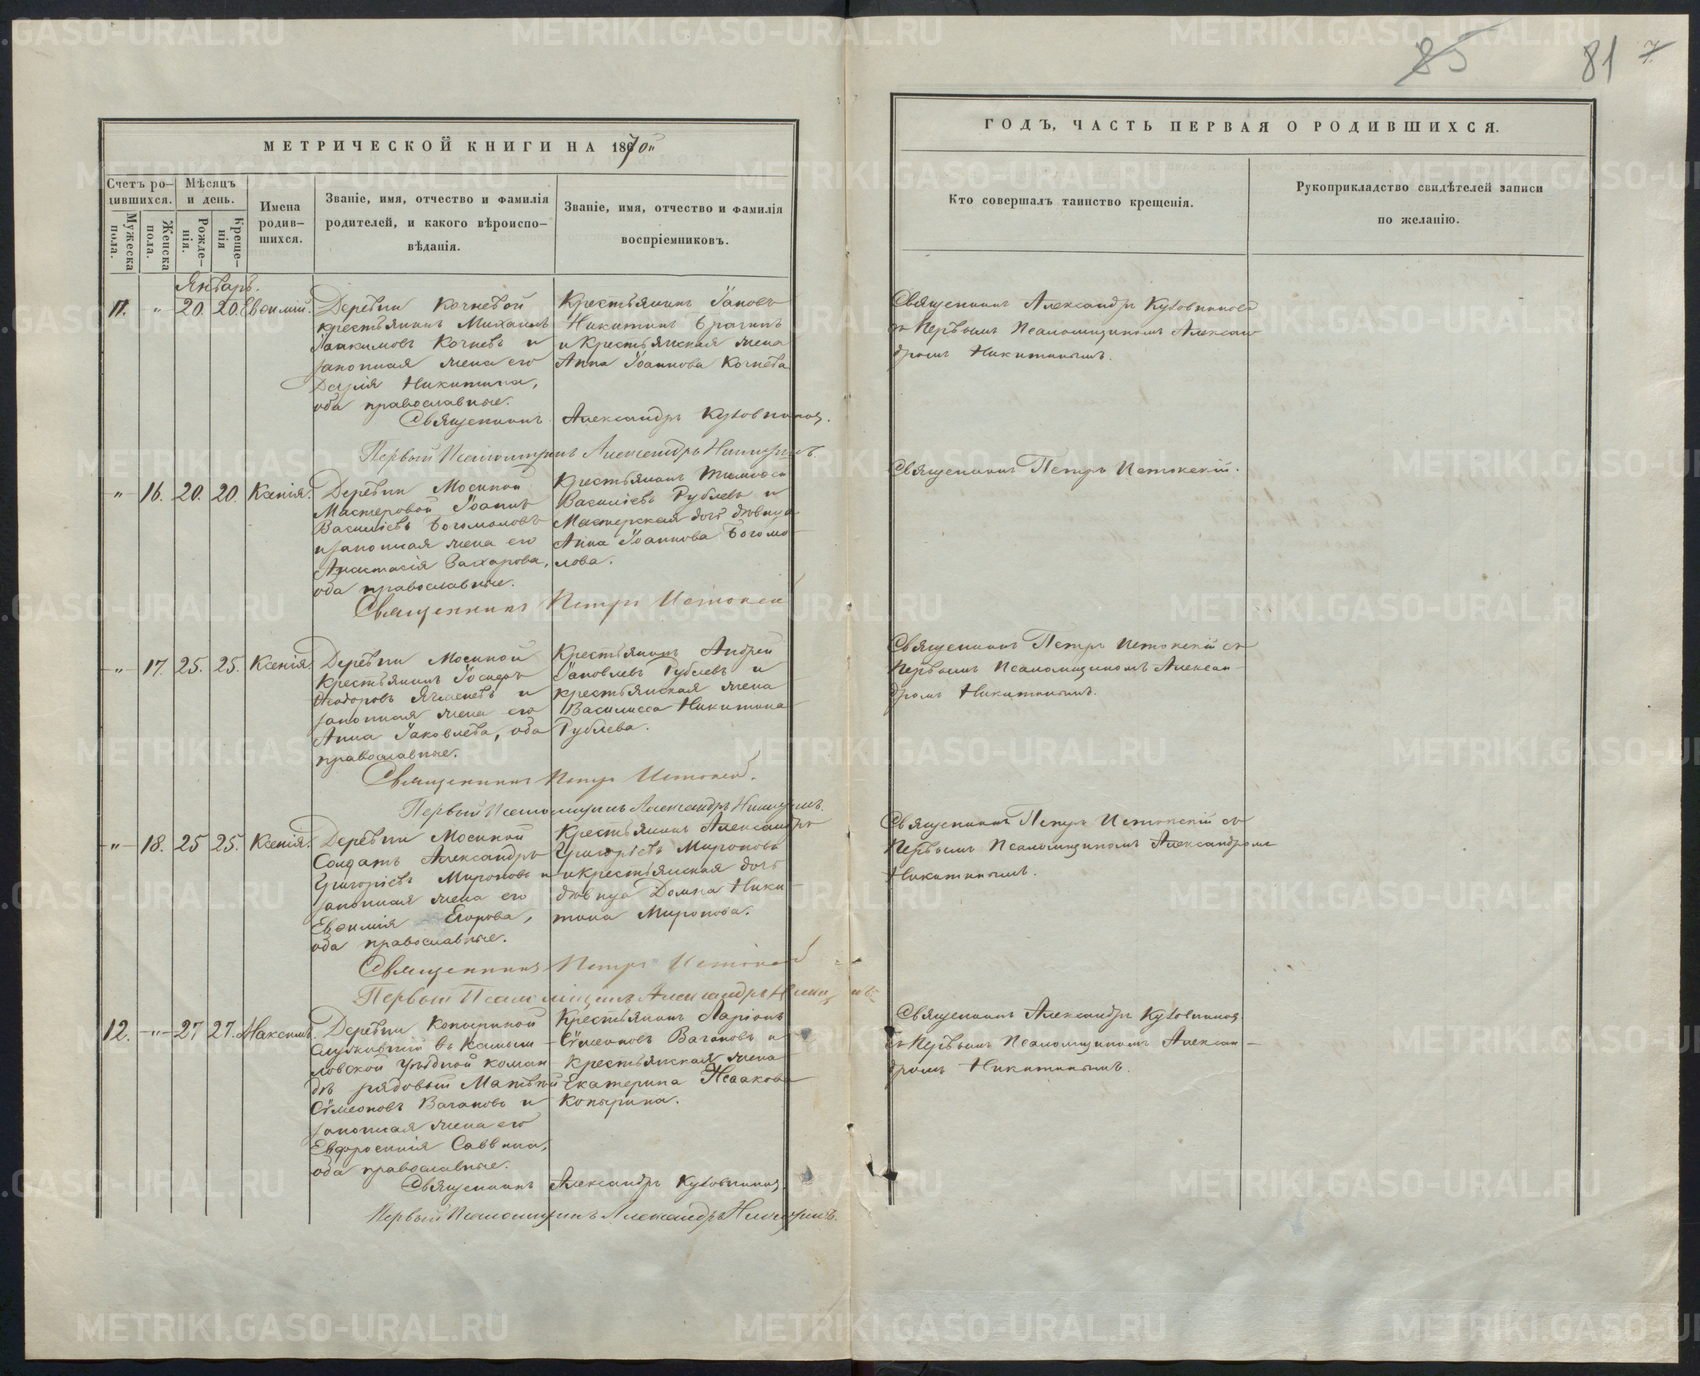 85 81 7
МЕТРИЧЕСКОЙ КНИГИ НА 1870й
Счетъ ро-
дившихся.
Мужеска пола.
Женска пола.
Мѣсяцъ
и день.
Рожде-
нія.
Креще-
нія
Имена
родив-
шихся.
Званіе, имя, отчество и фамилія
родителей, и какого вѣроиспо-
вѣданія.
Званіе, имя, отчество и фамилія
воспріемниковъ.
ГОДЪ, ЧАСТЬ ПЕРВАЯ О РОДИВШИХСЯ.
Кто совершалъ таинство крещенія.
Рукоприкладство свидѣтелей записи
по желанію.
Январь.
11. " 20. 20. Евѳимій.
Деревни Кочневой
крестьянинъ Михаилъ
Іоакимовъ Кочневъ и
законная жена его
Дарія Никитина,
оба православные.
Крестьянинъ Іаковъ
Никитинъ Брагинъ
и крестьянская жена
Анна Іоаннова Кочнева
Священникъ Александръ
съ Первымъ Псаломщикомъ Алексан-
дромъ Никитинымъ.
Священникъ Александръ
Первый Псаломщикъ Александръ Никитинъ.
" 16. 20. 20. Ксенія.
Деревни Мосиной
Мастеровой Іоаннъ
Василіевъ Богомоловъ
и законная жена его
Анастасія Захарова,
оба православные.
Крестьянинъ
Василіевъ Рублевъ и
Мастерская дочь дѣвица
Анна Іоаннова Богомо-
лова.
Священникъ Петръ Истокскій.
Священникъ Петръ
" 17. 25. 25. Ксенія.
Деревни Мосиной
крестьянинъ Іосифъ
Ѳеодоровъ и
законная жена его
Анна Іаковлева, оба
православные.
Крестьянинъ Андрей
Іаковлевъ Рублевъ и
крестьянская жена
Василисса Никитина
Рублева.
Священникъ Петръ Истокскій съ
Первымъ Псаломщикомъ Алексан-
дромъ Никитинымъ.
Священникъ Петръ
Первый Псаломщикъ Александръ Никитинъ.
" 18. 25 25. Ксенія.
Деревни Мосиной
Солдатъ Александръ
Григорьевъ Мироновъ и
законная жена его
Евѳимія Егорова,
оба православные.
Крестьянинъ Александръ
Григорьевъ Мироновъ
и крестьянская дочь
дѣвица Домна Ники-
тина Миронова.
Священникъ Петръ Истокскій съ
Первымъ Псаломщикомъ Александромъ
Никитинымъ.
Священникъ Петръ
Первый Псаломщикъ Александръ
12. " 27 27. Максимъ.
Деревни Копыриной
служившій въ Камыш-
ловской уѣздной коман-
дѣ рядовый Матвѣй
Сѵмеоновъ Вагановъ и
законная жена его
Евфросинія Саввина,
оба православные.
Крестьянинъ Ларіонъ
Сѵмеоновъ Вагановъ и
крестьянская жена
Екатерина Исаакова
Копырина.
Священникъ Александръ
съ Первымъ Псаломщикомъ Алексан-
дромъ Никитинымъ.
Священникъ Александръ
Первый Псаломщикъ Александръ Никитинъ.
METRIKI.GASO-URAL.RU